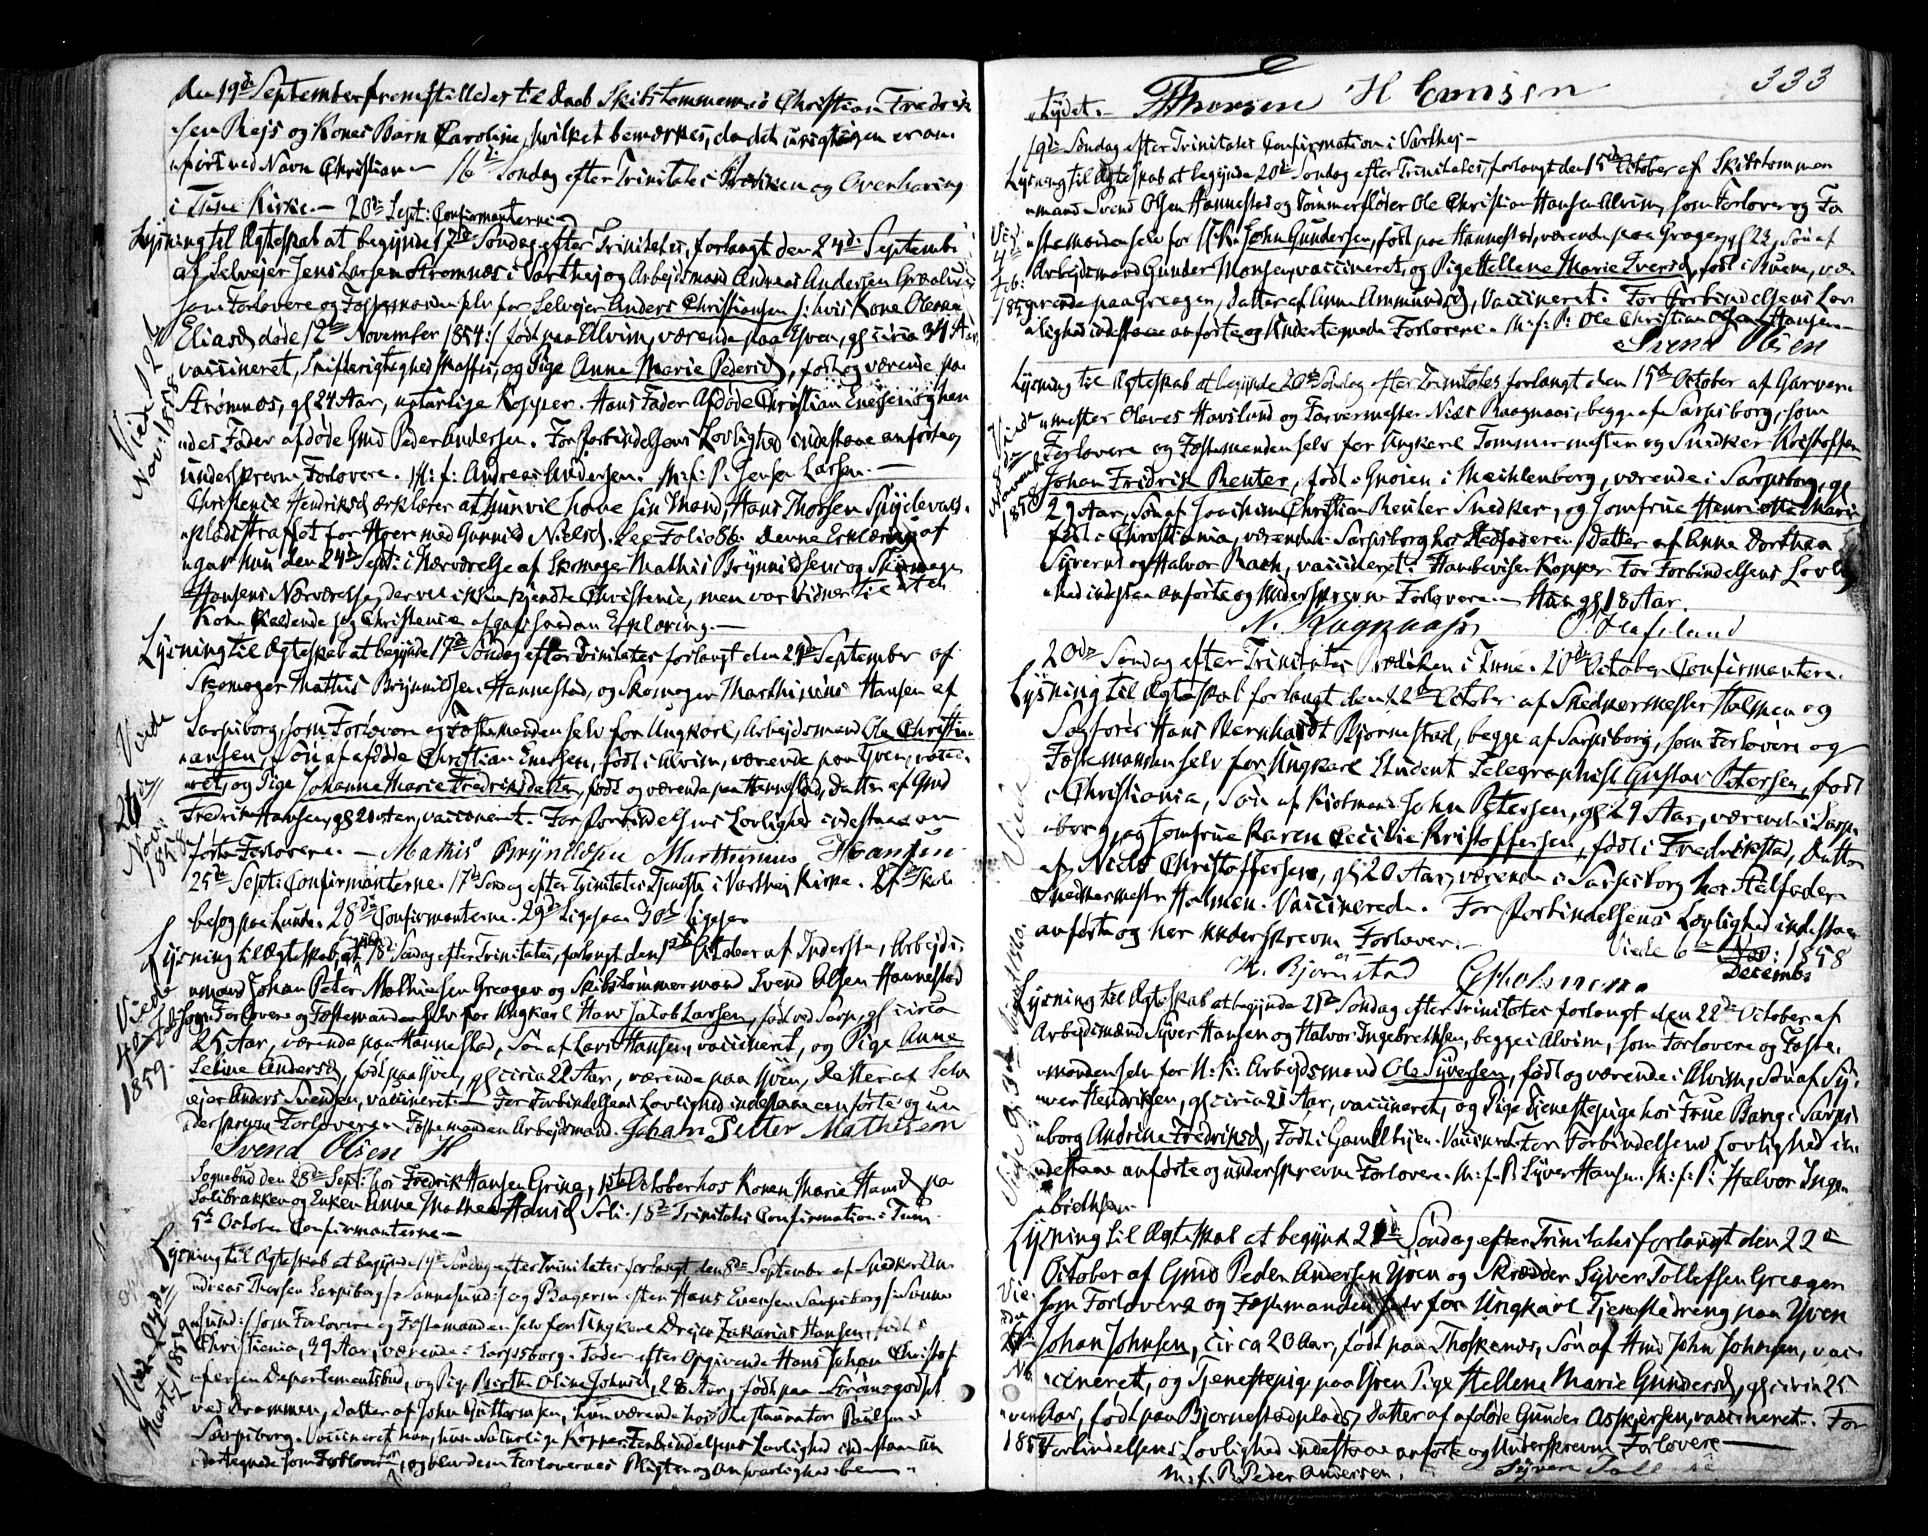 den 19de September fremstilledes til Daab Skibstømmermand Christian Fredrik
sen Rejs og Kones Barn Caroline, hvilket bemærkes, da det urigtigen er an
ført ved Navn Christian. 16de Søndag efter Trinitatis Prædiken og Overhøring
i Tune Kirke. 20de Sept: Confirmanterne
Lysning til Ægteskab at begynde 17de Søndag efter Trinitatis, forlangt den 24de Septembr
af Selvejer Jens Larsen Strømnæs i Varthej og Arbejdsmand Andreas Andersen
som Forlovere og Fæstemanden selv for Selvejer Anders Christiansen /: hvis Kone Olene
Eliasd døde 12te November 1854 :/ født paa Alvim, værende paa Yven, gl circa 34 Aar,
vaccineret, Skifterigtighed skaffes, og Pige Anne Marie Pedersd, født og værende paa
Strømnæs, gl 24 Aar, naturlige Kopper. Hans Fader Afdøde Christian Enersen og hen
des Fader afdøde Gmd Peder Andersen. For Forbindelsens Lovlighed indestaae anførte og
underskrevne Forlovere. M: f: Andreas Andersen. M: f: P: Jens Larsen.
Christence Hendriksd erklærer at hun vil have sin Mand, Hans Thorsen
plads straffet for Hoer med Gunnild Nielsd. See Folio 86. Denne Erklæring af
gav hun den 24de Sept: i Nærværelse af Skomager Mathis Brynnildsen og Skomager
Hansens Nærværelse, der vel ikke kjendte Christence, men var Vidner til at en
Kone kaldende sig Christence afgav saadan Erklæring.
Lysning til Ægteskab at begynde 17de Søndag efter Trinitatis forlangt den 24de September af
Skomager Mathis Brynnildsen Hannestad, og Skomager Marthinius Hansen af
Sarpsborg, som Forlovere og Fæstemanden selv for Ungkarl, Arbejdsmand Ole Christi
ansen, Søn af afdøde Christian Enersen, født i Alvim, værende paa Yven, vacci
neret, og Pige Johanne Marie Fredriksdatter, født og værende paa Hannestad, Datter af Gmd
Fredrik Hansen, gl 20 Aar, vaccineret. For Forbindelsens Lovlighed indestaae an
førte Forlovere. — Mathis Brynildsen Marthinius Hansen
25de Sept: Confirmanterne. 17de Søndag efter Trinitatis Tjeneste i Varthej Kirke. 27de Skole
besøg paa Lunde. 28de Confirmanterne. 29de Ligesaa 30te Ligesaa
Lysning til Ægteskab, at begynde 18de Søndag efter Trinitatis, forlangt den 1ste October af Inderste, Arbejds
mand Johan Peter Mathiesen Greager og Skibstømmermand Svend Olsen Hannestad
som Forlovere og Fæstemanden selv for Ungkarl Hans Jakob Larsen, født ved Sarp, gl circa
25 Aar, værende paa Hannestad, Søn af Lars Hansen, vaccineret, og Pige Anne
Seline Andersd, født paa Yven, gl circa 22 Aar, værende paa Yven, Datter af Selv
ejer Anders Svendsen, vaccineret. — For Forbindelsens Lovlighed indestaae anførte og un
derskrevne Forlovere. Fæstemanden Arbejdsmand. Johan Petter Mathisen
Svend Olsen H
Sognebud den 28de Sept: hos Fredrik Hansen Grina, 1ste October hos Konen Marie Hansd paa
Solibrækken og Enken Anne Mathea Hansd Soli. 18de Trinitatis Confirmation i Tune.
5te October Confirmanterne —
Lysning til Ægteskab at begynde 19de Søndag efter Trinitatis forlangt den 8de September af Snedker An
dreas Thorsen Sarpsborg /: Sannesund :/ og Bagermesteren Hans Evensen Sarpsborg /: Sanne
sund :/ som Forlovere og Fæstemanden selv for Ungkarl Drejer Zakarias Hansen, født i
Christiania, 29 Aar, værende i Sarpsborg. Fader efter Opgivende Hans Johan Christof
fersen Departementsbud, og Pige Berthe Oline Johnsd, 28 Aar, født paa Strømsgodset
ved Drammen, Datter af John Guttormsen, hun værende hos Restaurator Paulsen i
Sarpsborg. Vaccineret han, hun Naturlige Kopper. Forbindelsens Lovlighed indestaae un
dertegnede som Forlovere, og blev dem Forlovernes Pligter og Ansvarlighed be
Viede 12te
Nov: 1858
Viede
26de
Nov:
1858
Viede
4de Feb
1859.
Viede 24de
Marts 1859
333
tydet. — Thorsen H Evensen
19de Søndag efter Trinitatis Confirmation i Varthej —
Lysning til Ægteskab at begynde 20de Søndag efter Trinitatis, forlangt den 15de October af Skibstømmer
mand Svend Olsen Hannestad og Tømmerfløder Ole Christian Hansen Alvim, som Forlovere og Fæ
stemanden selv for U: K: John Gundersen, født paa Hannestad, værende paa Greager, gl 23, Søn af
Arbejdsmand Gunder Monsen, vaccineret, og Pige Hellene Marie Iversd, født i , væ
rende paa Greager, Datter af Anne Ammundsd, Vaccineret. For Forbindelsens Lov
lighed indestaae anførte og Undertegnede Forlovere. M: f: P: Ole Christian Hansen
Svend Olsen
Lysning til Ægteskab at begynde 20de Søndag efter Trinitatis forlangt den 15de October af Garver
mester Olaves Haveslund og Farvermester Niels Raagnaas, begge af Sarpsborg, som
Forlovere og Fæstemanden selv for Ungkarl Tømmermester og Snedker Kristoffer
Johan Fredrik Reuter, født i Gnoien i Mechlenborg, værende i Sarpsborg, gl
29 Aar, Søn af Joachim Christian Reuter Snedker, og Jomfrue Henriette Marie
født i Christiania, værende i Sarpsborg hos Stedfaderen /Datter af Anne Dorthea
Syvers og Halvor Bach, vaccineret. Han beviser Kopper For Forbindelsens Lovlig
hed indestaa anførte og Underskrevne Forlovere. — Hun gl 18 Aar.
N. Ragnaas O. Hafslund
20de Søndag efter Trinitatis Prædiken i Tune. 20de October Confirmanterne.
Lysning til Ægteskab forlangt den 22de October af Snedkermester Holmen og
Sagfører Hans Bernhardt Bjørnestad, begge af Sarpsborg, som Forlovere og
Fæstemanden selv for Ungkarl Student Telegraphist Gustav Petersen, født
i Christiania, Søn af Kjøbmand John Petersen, gl 29 Aar, værende i Sarps
borg, og Jomfrue Karen Cecilie Kristoffersen, født i Fredrikstad, Datter
af Niels Christoffersen, gl 20 Aar, værende i Sarpsborg hos Stedfader
Snedkermester Holmen. Vaccinerede. For Forbindelsens Lovlighed indestaae
anførte og her underskrevne Forlovere. —
Viede 6te Nov: 1858
Decembr
H. Bjørnestad Holmen.
Lysning til Ægteskab at begynde 21de Søndag efter Trinitatis forlangt den 22de October af
Arbejdsmænd Syver Hansen og Halvor Ingebrethsen, begge i Alvim, som Forlovere og Fæste
manden selv for U: K: Arbejdsmand Ole Syversen, født og værende i Alvim, Søn af Sy
ver Hendriksen, gl circa 21 Aar, vaccineret, og Pige Tjenestepige hos Frue Bang i Sarps
borg Andrine Fredriksd, Født i Gamlebyen. Vaccineret. For Forbindelsens Lovlighed in
destaae anførte og underskrevne Forlovere. M: f: P: Syver Hansen. M: f: P: Halvor Inge
brethsen.
Lysning til Ægteskab at begynde 21de Søndag efter Trinitatis forlangt den 22de
October af Gmd Peder Andersen Yven og Skrædder Syver Tollefsen Greager
som Forlovere og Fæstemanden selv for Ungkarl Tjenestedreng paa Yven
Johan Johnsen, circa 20 Aar, født paa Thoskenæs, Søn af Hmd John Johnsen, vac
cineret, og Tjenestepige paa Yven Pige Hellene Marie Gundersd, gl circa 25
Aar, født paa Bjørnestadplads, Datter af afdøde Gunder Askjersen, vaccineret. For
Forbindelsens Lovlighed indestaae anførte og Underskrevne Forlovere —
m: f: P. Peder Andersen. Syver Toll
Vied
4de
Feb:
1859
Viede
November
1858
Viede
1858